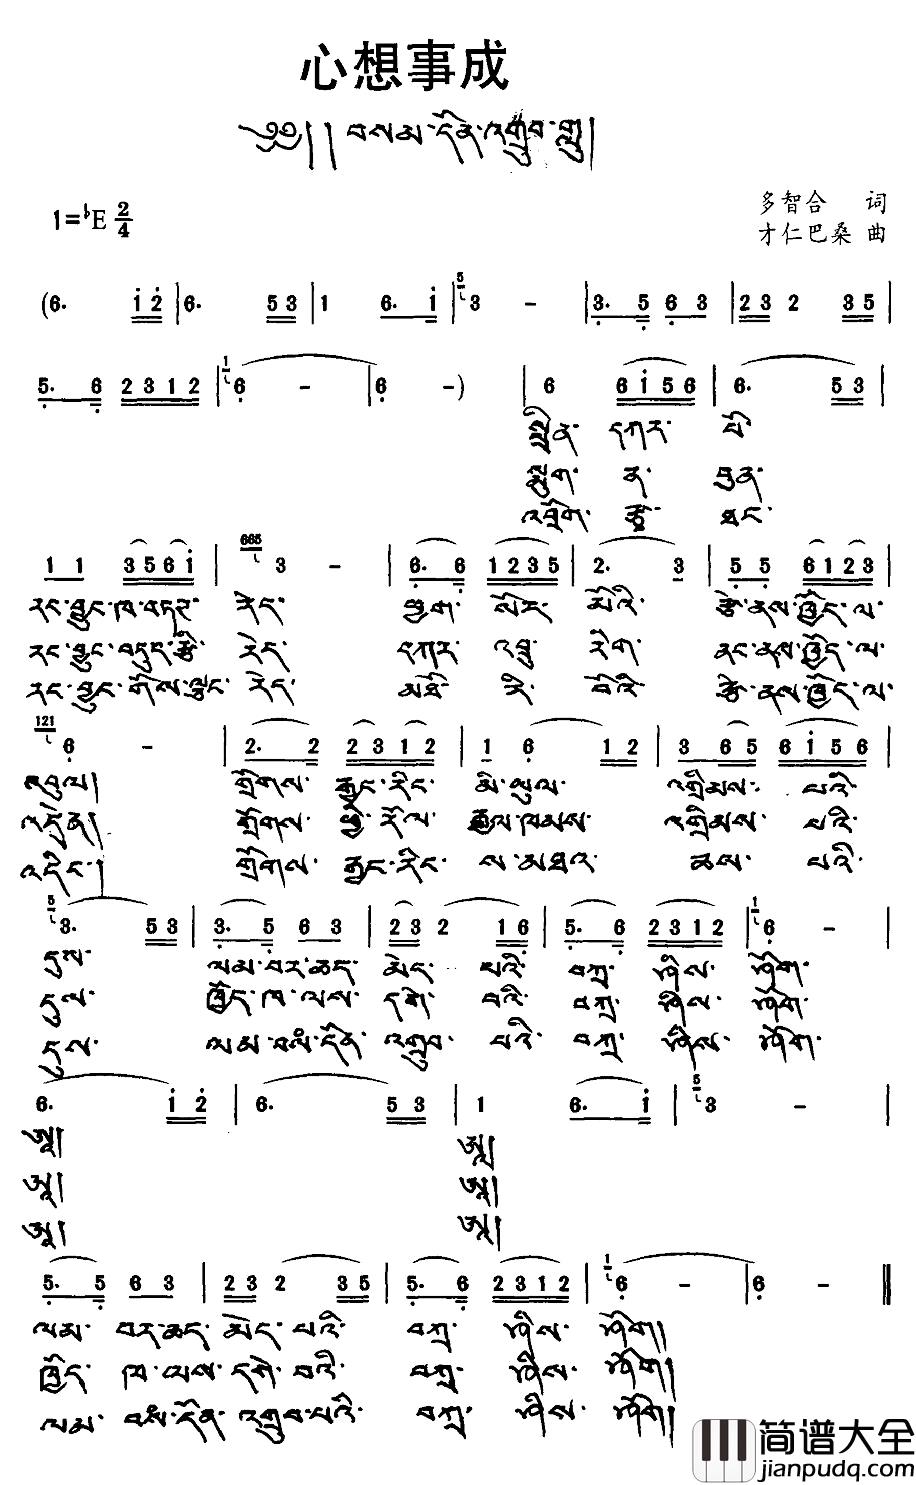 心想事成
༄༅། །བསམ་དོན་འགྲུབ་གླུ།
多智合 词
1=♭E 2/4
才仁巴桑 曲
(6. i 2 | 6. 5 3 | 1 6. i | 3 - | 3. 5 6 3 | 2 3 2 3 5 |
5. 6 2 3 1 2 | 6 - | 6 - ) | 6 6 i 5 6 | 6. 5 3 |
སྤྲིན་ དཀར་ པོ་
ལུག་ ན་
འབྲོག་ རྩྭ་ ཐང་
1 1 3 5 6 i | 3 - | 6. 6 1 2 3 5 | 2. 3 | 5 5 6 1 2 3 |
རང་བྱུང་ཁ་བཏར་ རེད་ ཕྱུག་ སེར་ མོའི་ རྩེ་ནས་ཁྱོད་ལ་
རང་བྱུང་བདུད་རྩི་ རེད་ དཀར་ འབྲུ་ རིག་ ནང་ནས་ཁྱོད་ལ་
རང་བྱུང་གོས་ལྗང་ རེད་ མཐོ་ རི་ བོའི་ རྩེ་ནས་ཁྱོད་ལ་
6 - | 2. 2 2 3 1 2 | 1 6 1 2 | 3 6 5 6 i 5 6 |
འབུལ། གྲོགས་ རྒྱང་རིང་ མི་ཡུལ་ འགྲིམས་ པའི་
འདྲེན། གྲོགས་ ཕྱི་རོལ་ རྒྱལ་ཁམས་ འགྲིམས་ པའི་
འདིང་། གྲོགས་ རྒྱང་རིང་ ས་མཐའ་ ཆས་ པའི་
3. 5 3 | 3. 5 6 3 | 2 3 2 1 6 | 5. 6 2 3 1 2 | 6 - |
དུས་ ལམ་བར་ཆད་ མེད་ པའི་ བཀྲ་ ཤིས་ ཤོག་
དུས་ ཁྱོད་ཁ་ལས་ དགེ་ བའི་ བཀྲ་ ཤིས་ ཤོག་
དུས་ ལམ་བསམ་དོན་ འགྲུབ་ པའི་ བཀྲ་ ཤིས་ ཤོག་
6. i 2 | 6. 5 3 | 1 6. i | 3 - |
ཨཱ། ཨཱ།
ཨཱ། ཨཱ།
ཨཱ། ཨཱ།
5. 5 6 3 | 2 3 2 3 5 | 5. 6 2 3 1 2 | 6 - | 6 - ‖
ལམ་ བར་ཆད་ མེད་ པའི་ བཀྲ་ ཤིས་ ཤོག།
ཁྱོད་ ཁ་ལས་ དགེ་ བའི་ བཀྲ་ ཤིས་ ཤོག།
ལམ་ བསམ་དོན་ འགྲུབ་པའི་ བཀྲ་ ཤིས་ ཤོག།
简谱大全
jianpudq.com